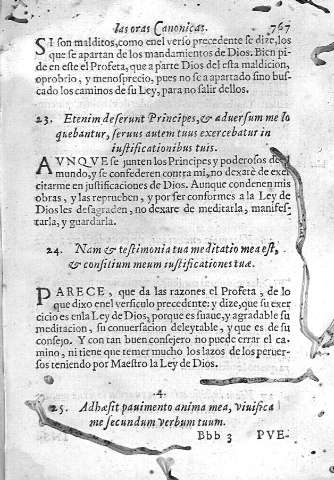 las oras Canonicas. 767
SI son malditos, como enel verso precedente se dize, los
que se apartan de los mandamientos de Dios. Bien pi-
de en este el Profeta, que a parte Dios del esta maldicion,
oprobrio, y menosprecio, pues no se a apartado sino bus-
cado los caminos de su Ley, para no salir dellos.
23. Etenim deserunt Principes, & aduersum me lo
quebantur, seruus autem tuus exercebatur in
iustificationibus tuis.
AVNQVE se junten los Principes y poderosos del
mundo, y se confederen contra mi, no dexare de exer-
citarme en justificaciones de Dios. Aunque condenen mis
obras, y las reprueben, y por ser conformes a la Ley de
Dios les desagraden, no dexare de meditarla, manifes-
tarla, y guardarla.
24. Nam & testimonia tua meditatio mea est,
& consilium meum iustificationes tuæ.
PARECE, que da las razones el Profeta, de lo
que dixo enel versiculo precedente: y dize, que su exer
cicio es enla Ley de Dios, porque es suaue, y agradable su
meditacion, su conuersacion deleytable, y que es de su
consejo. Y con tan buen consejero no puede errar el ca-
mino, ni tiene que temer mucho los lazos de los peruer-
sos teniendo por Maestro la Ley de Dios.
.4.
25. Adhæsit pauimento anima mea, viuifica
me secundum verbum tuum.
Bbb 3 PVE-